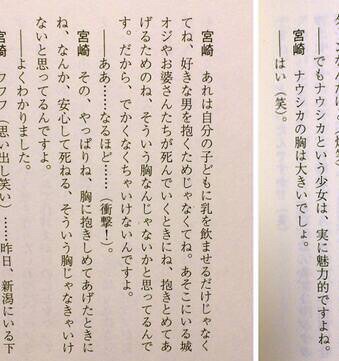 ――でもナウシカという少女は、実に魅力的ですよね。
宮崎　ナウシカの胸は大きいでしょ。
――はい（笑）。
宮崎　あれは自分の子どもに乳を飲ませるだけじゃなく
てね、好きな男を抱くためじゃなくてね。あそこにいる城
オジやお婆さんたちが死んでいくときにね、抱きとめてあ
げるためのね、そういう胸なんじゃないかと思ってるんで
す。だから、でかくなくちゃいけないんですよ。
――ああ……なるほど……（衝撃！）。
宮崎　その、やっぱりね、胸に抱きしめてあげたときに
ね、なんか、安心して死ねる、そういう胸じゃなきゃいけ
ないと思ってるんですよ。
――よくわかりました。
宮崎　フフフ（思い出し笑い）……昨日、新潟にいる下